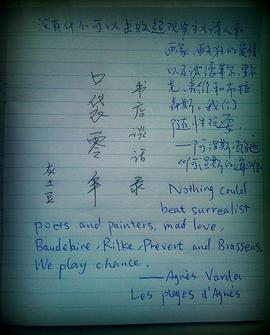 没有什么可以击败超现实主义诗人和
画家,疯狂的爱情
以及波德莱尔、里尔
克、普维和布拉
森斯。我们
随性玩耍
——阿涅斯·瓦尔达
《阿涅斯的海滩》
书店谈话录
口袋零年
炭土豆
Nothing could
beat surrealist
poets and painters, mad love,
Baudelaire, Rilke, Prevert and Brassens.
We play chance.
——Agnès Varda
Les plages d'Agnès